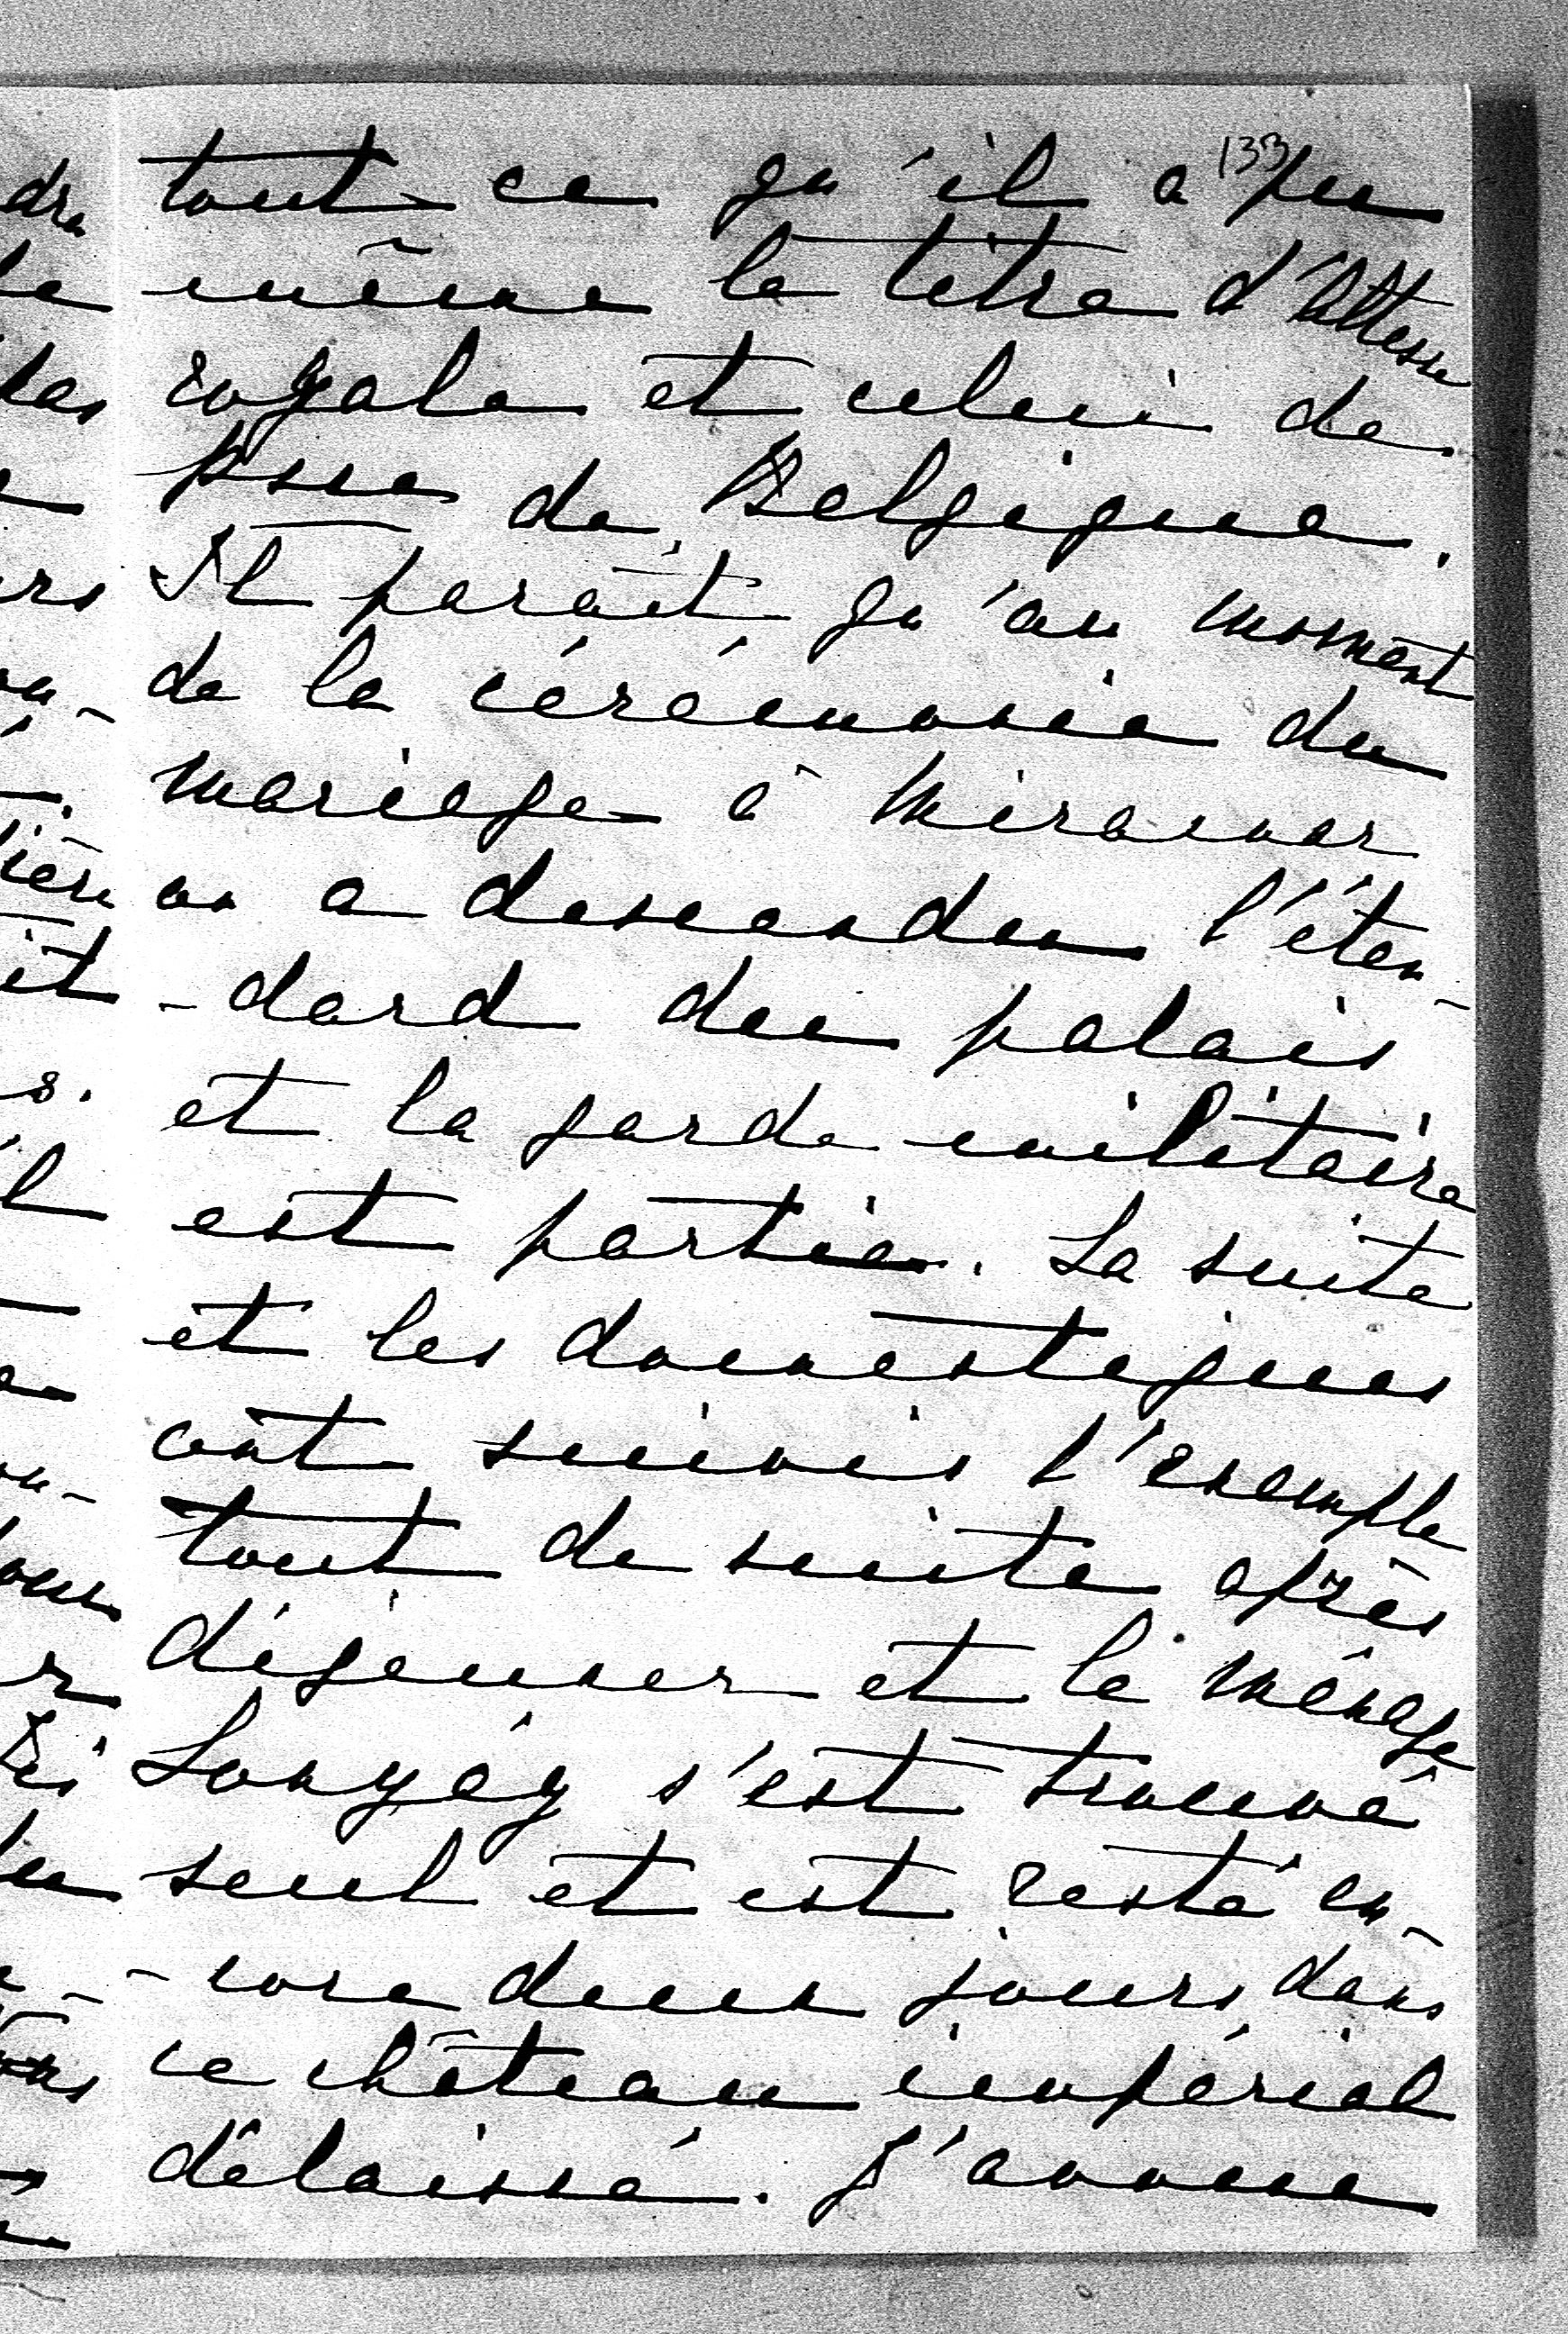 133
tout ce qu'il a pu
même le titre d'Altesse
royale et celui de
Psse de Belgique.
Il paraît qu'au moment
de la cérémonie du
mariage à Miramar
on a descendu l'éten-
-dard du palais
et la garde militaire
est partie. La suite
et les domestiques
ont suivis l'exemple
tout de suite après
déjeuner et le ménage
Lonyáy s'est trouvé
seul et est resté en-
-core deux jours dans
ce château impérial
délaissé. J'avoue